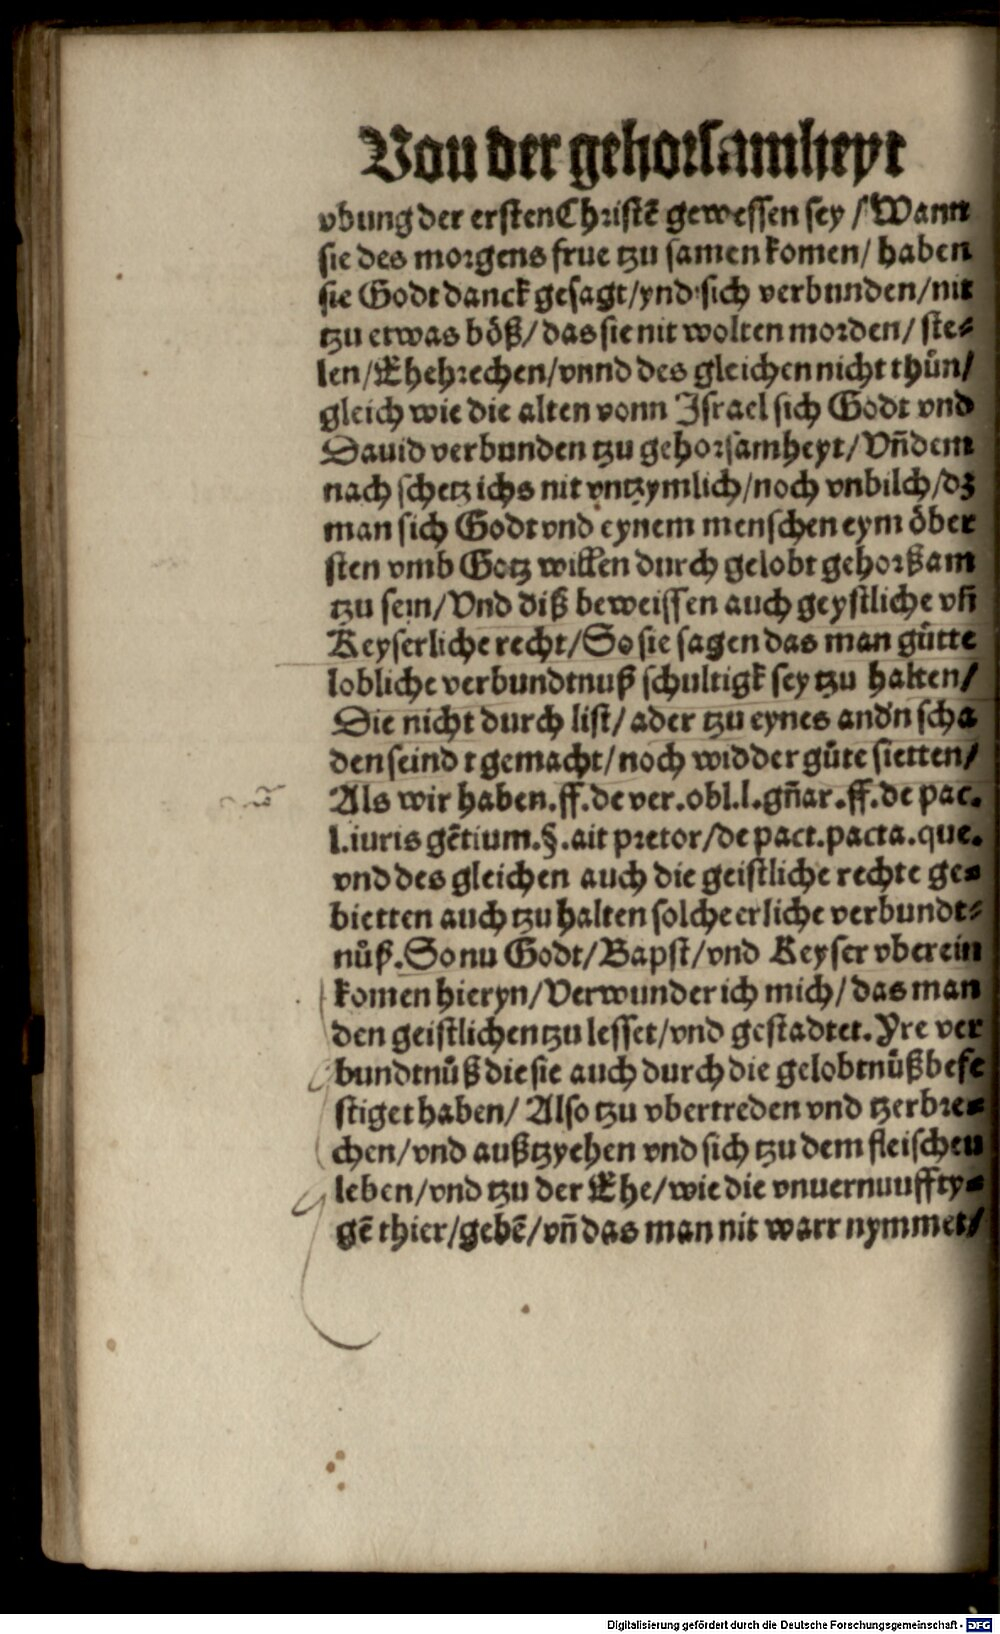 Von der gehorsamheyt
vbung der ersten Christē gewessen sey / Wann
sie des morgens frue tzu samen komen / haben
sie Godt danck gesagt / vnd sich verbunden / nit
tzu etwas böß / das sie nit wolten morden / ste⸗
len / Ehehrechen / vnnd des gleichen nicht thůn /
gleich wie die alten vonn Israel sich Godt vnd
Dauid verbunden tzu gehorsamheyt / Vñ dem
nach schetz ichs nit vntzymlich / noch vnbilch / dz
man sich Godt vnd eynem menschen eym öber
sten vmb Gotz willen durch gelobt gehorßam
tzu sein / Vnd diß beweissen auch geystliche vñ
Keyserliche recht / So sie sagen das man gůtte
lobliche verbundtnuß schultigk sey tzu halten /
Die nicht durch list / ader tzu eynes and'n scha
den seindt gemacht / noch widder gůte sietten /
Als wir haben. ff. de ver. obl. l. gñar. ff. de pac.
l. iuris gētium. §. ait pretor / de pact. pacta. que.
vnd des gleichen auch die geistliche rechte ge⸗
bietten auch tzu halten solche erliche verbundt⸗
nůß. So nu Godt / Bapst / vnd Keyser vberein
komen hieryn / Verwunder ich mich / das man
den geistlichen tzu lesset / vnd gestadtet. Yre ver
bundtnůß die sie auch durch die gelobtnůß befe
stiget haben / Also tzu vbertreden vnd tzerbre⸗
chen / vnd außtzyehen vnd sich tzu dem fleischen
leben / vnd tzu der Ehe / wie die vnuernuufftÿ⸗
gē thier / gebē / vñ das man nit warr nymmet /
Digitalisierung gefördert durch die Deutsche Forschungsgemeinschaft - DFG